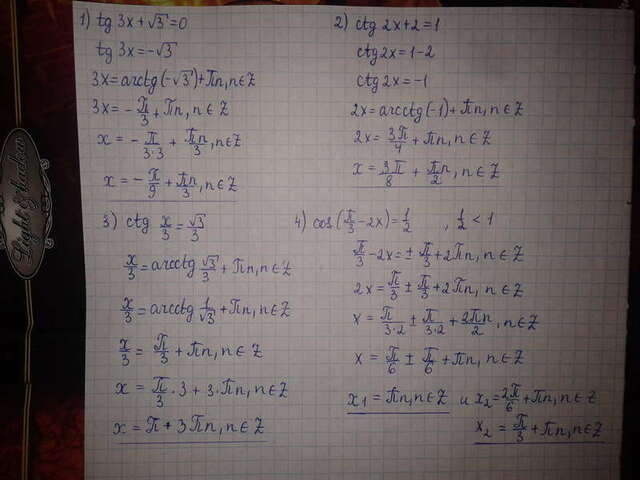 1) tg 3x + √3 = 0
tg 3x = -√3
3x = arctg(-√3) + πn, n ∈ Z
3x = -π/3 + πn, n ∈ Z
x = -π/(3·3) + πn/3, n ∈ Z
x = -π/9 + πn/3, n ∈ Z
2) ctg 2x + 2 = 1
ctg 2x = 1 - 2
ctg 2x = -1
2x = arcctg(-1) + πn, n ∈ Z
2x = 3π/4 + πn, n ∈ Z
x = 3π/8 + πn/2, n ∈ Z
3) ctg x/3 = √3/3
x/3 = arcctg √3/3 + πn, n ∈ Z
x/3 = arcctg 1/√3 + πn, n ∈ Z
x/3 = π/3 + πn, n ∈ Z
x = π/3 · 3 + 3 · πn, n ∈ Z
x = π + 3πn, n ∈ Z
4) cos(π/3 - 2x) = 1/2 , 1/2 < 1
π/3 - 2x = ± π/3 + 2πn, n ∈ Z
2x = π/3 ± π/3 + 2πn, n ∈ Z
x = π/(3·2) ± π/(3·2) + 2πn/2, n ∈ Z
x = π/6 ± π/6 + πn, n ∈ Z
x₁ = πn, n ∈ Z и x₂ = 2π/6 + πn, n ∈ Z
x₂ = π/3 + πn, n ∈ Z
Light & Shadow